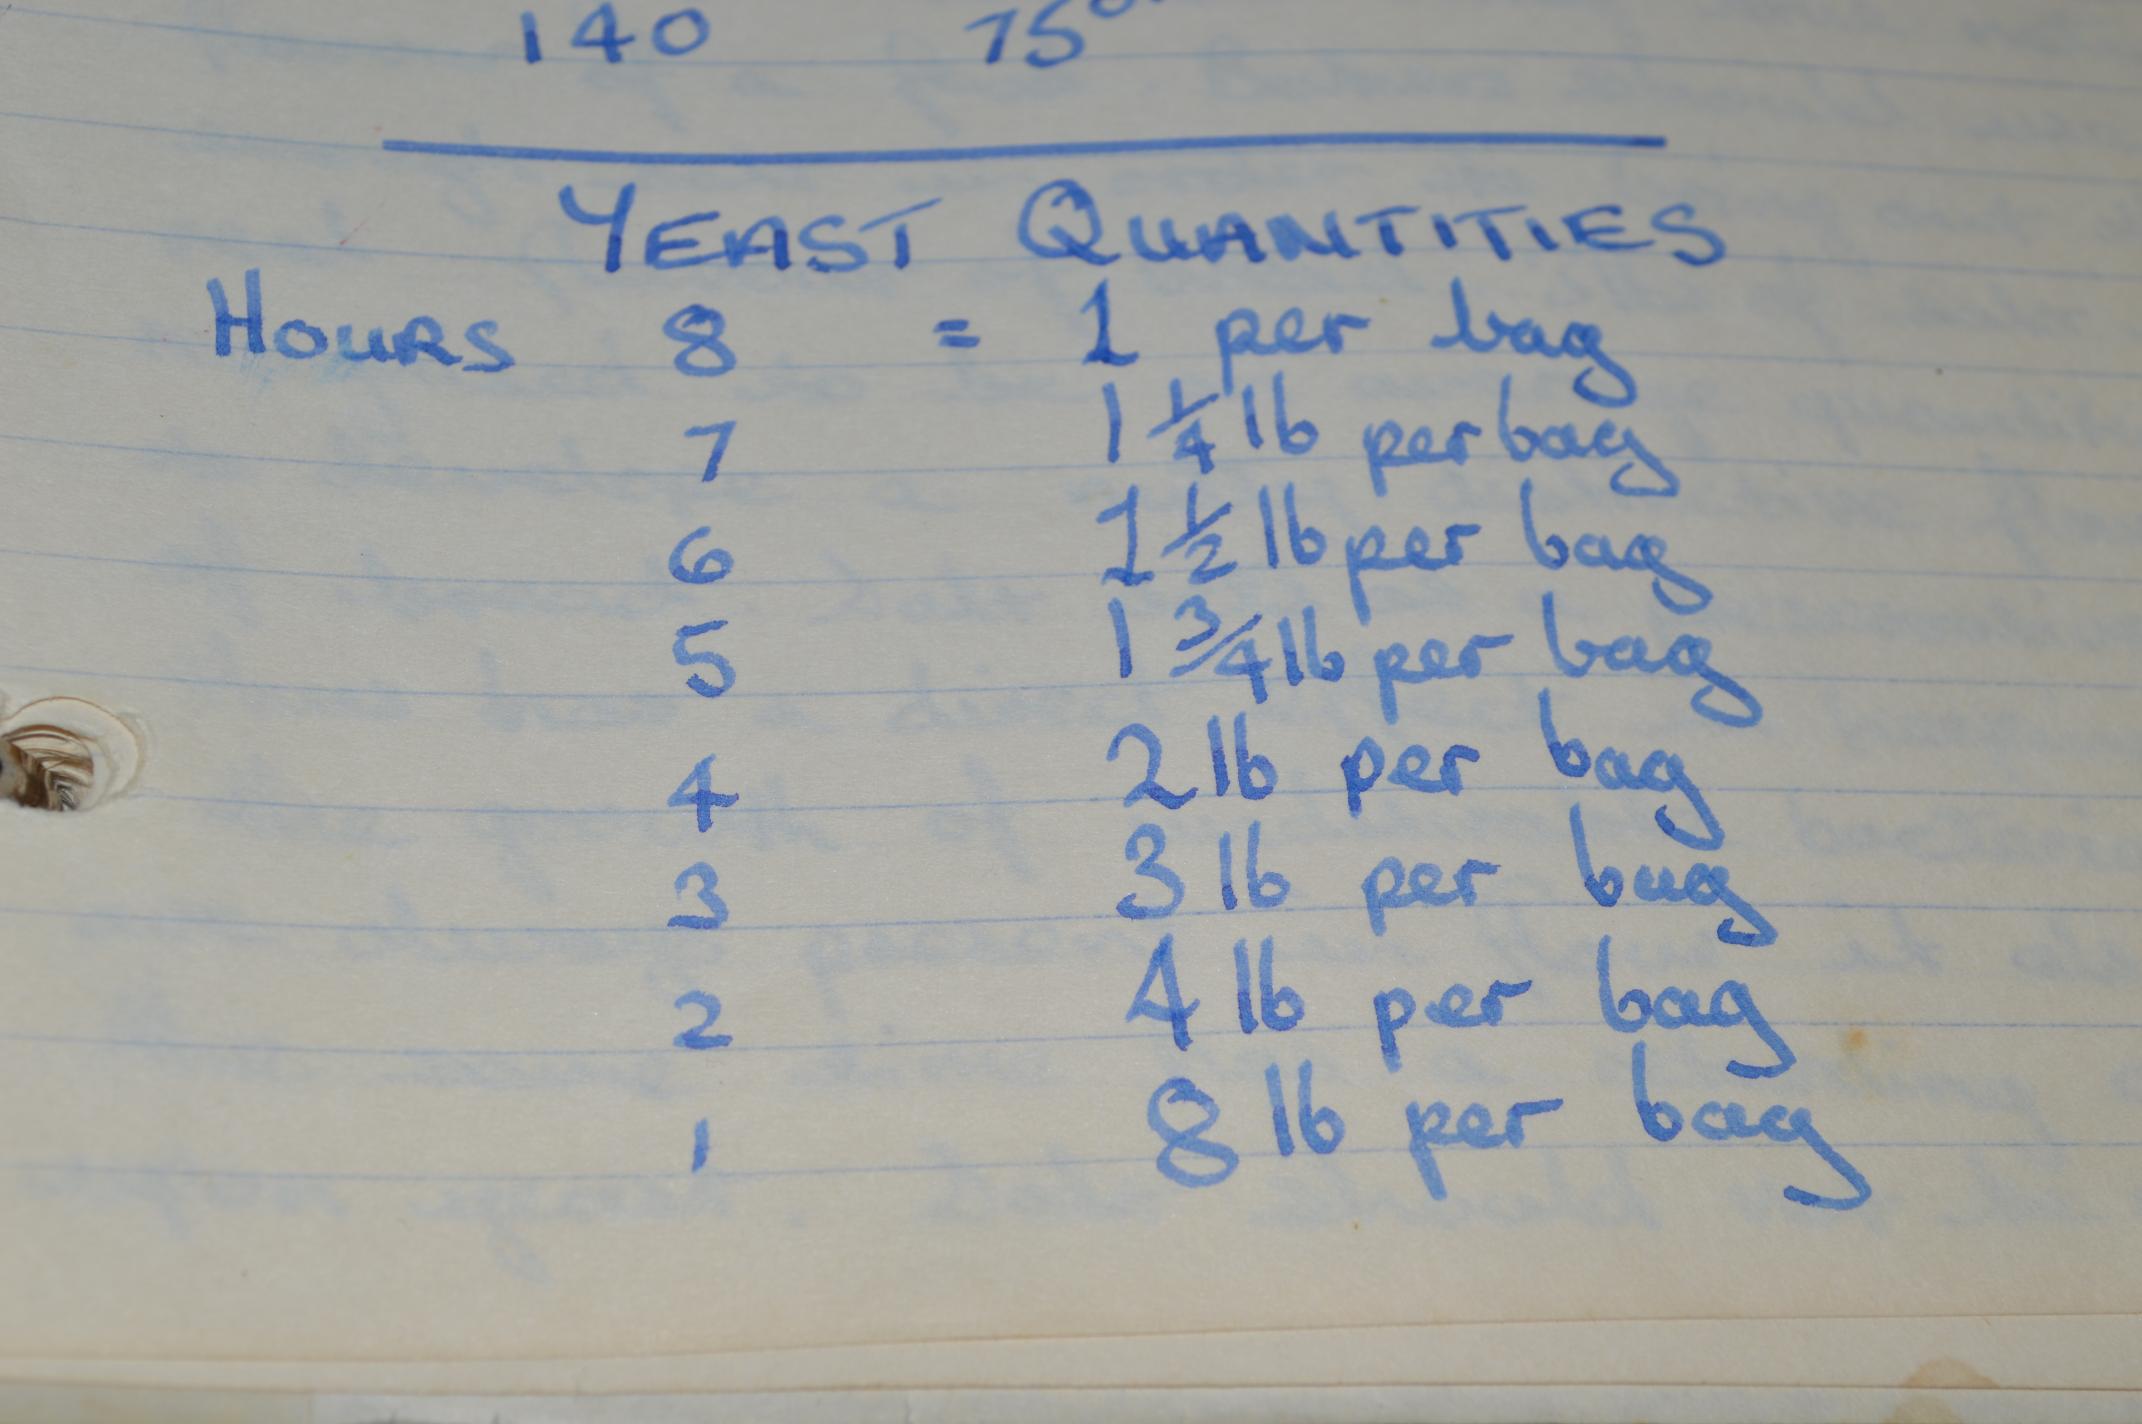 140 75°
YEAST QUANTITIES
HOURS 8 = 1 per bag
7 1 1/4 lb per bag
6 1 1/2 lb per bag
5 1 3/4 lb per bag
4 2 lb per bag
3 3 lb per bag
2 4 lb per bag
1 8 lb per bag